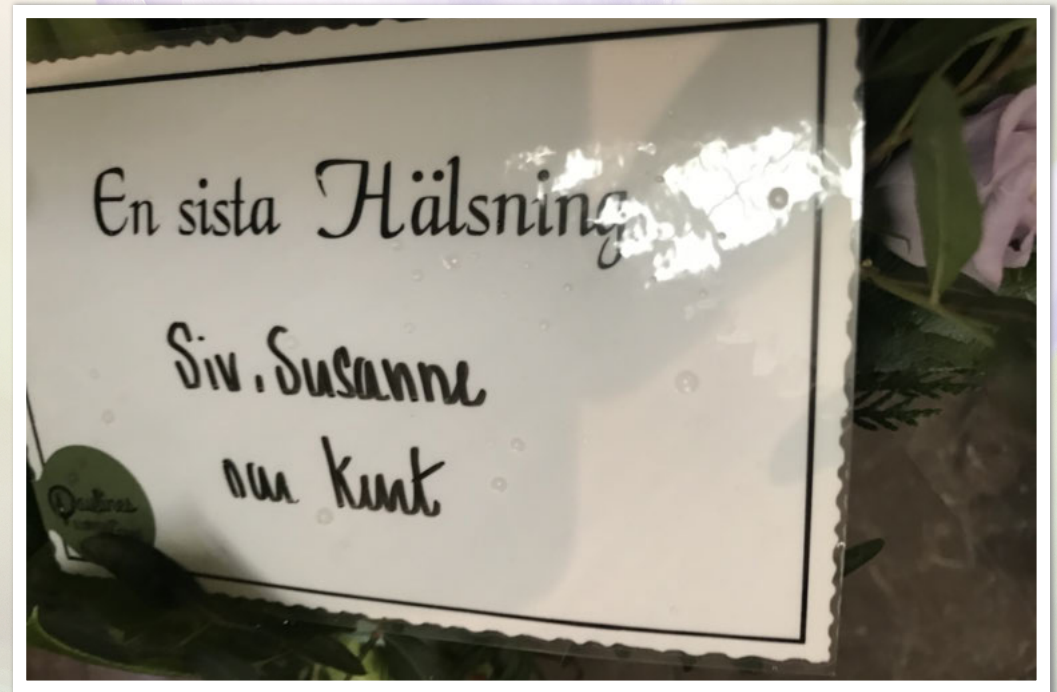 En sista Hälsning
Siv, Susanne
och Kurt
Paulines